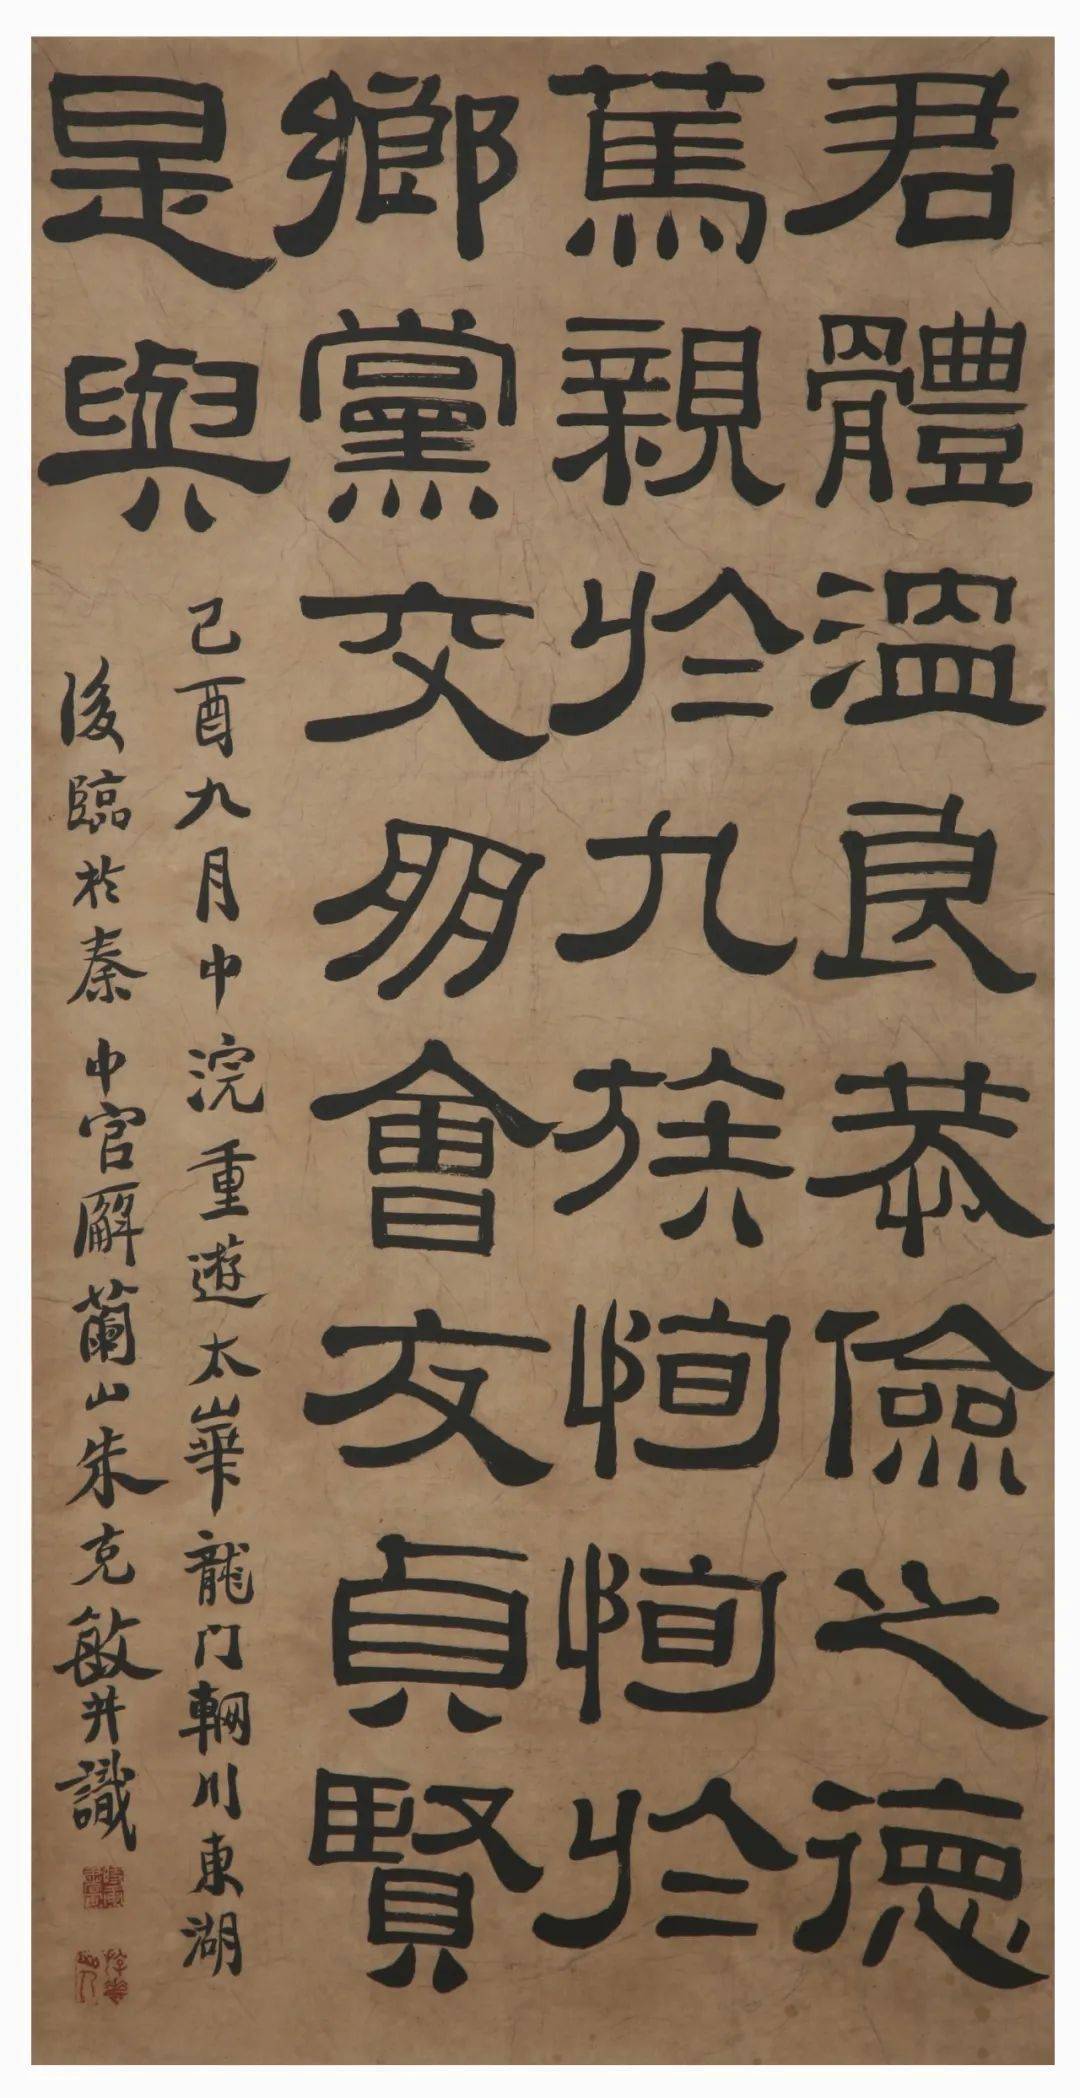 君體溫良恭儉之德
篤親於九族恂恂於
鄉黨交朋會友貞賢
是與
己酉九月中浣重遊太崋龍门輞川東湖
後臨於秦中官廨蘭山朱克敏并識